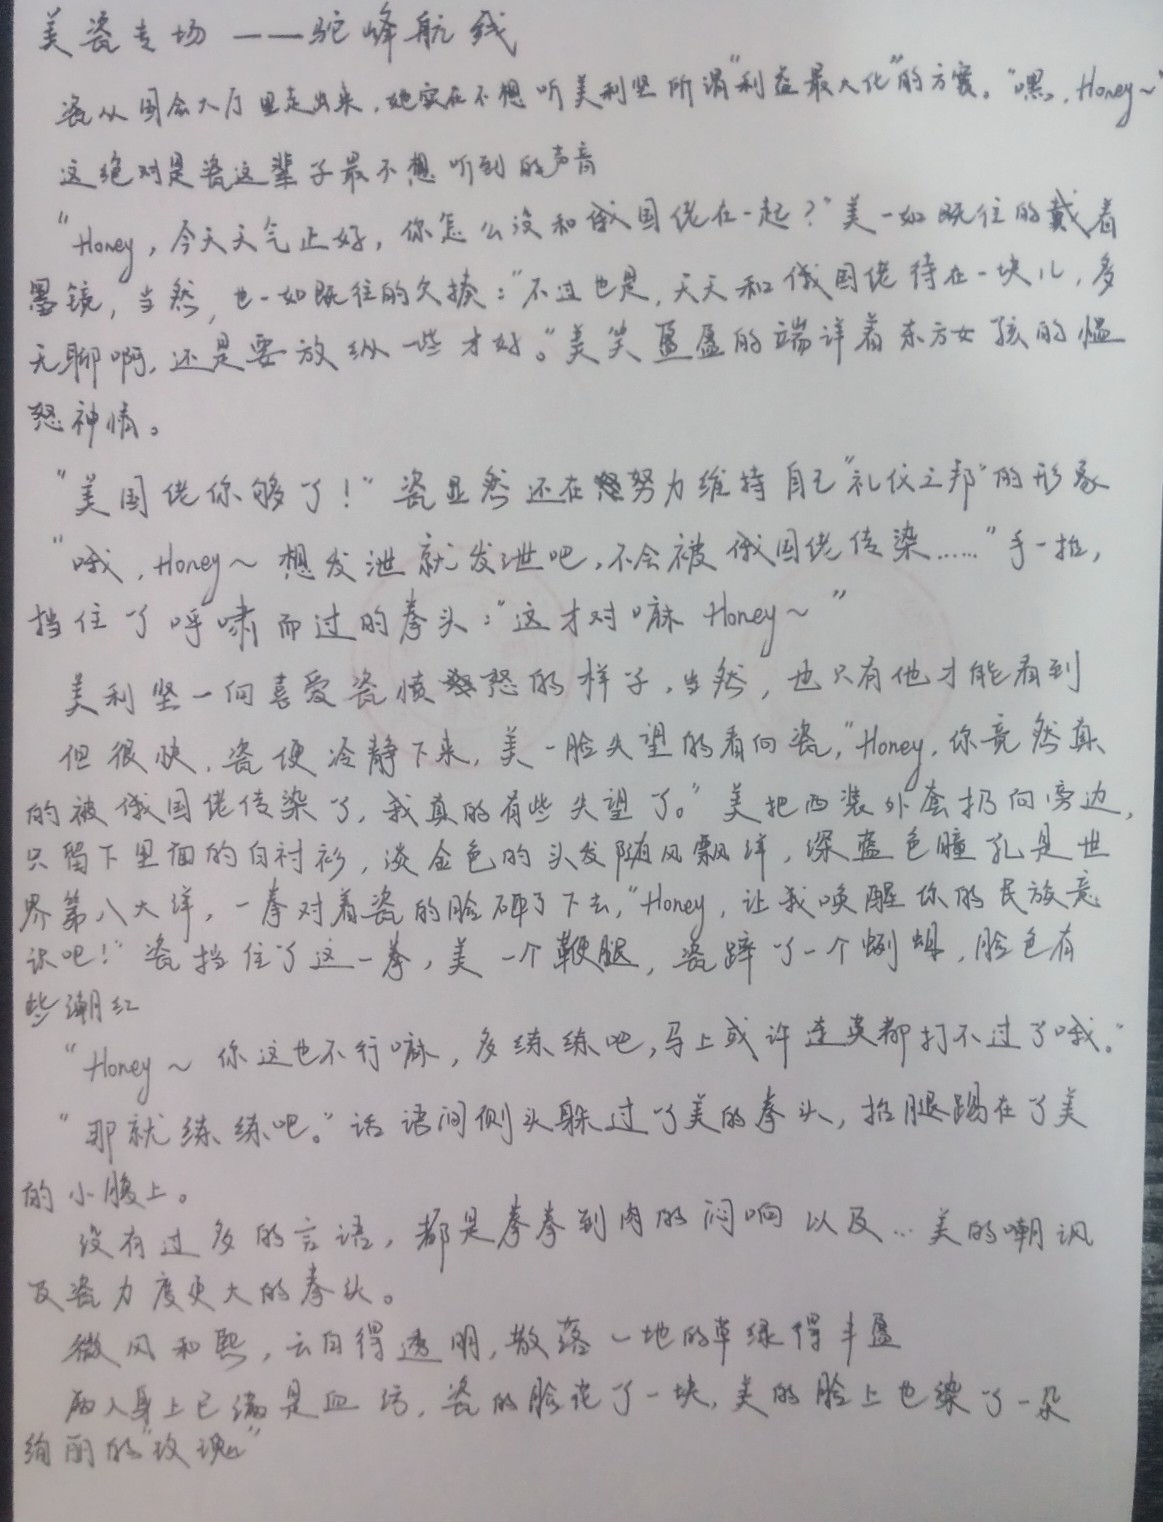 美瓷专场 ——驼峰航线
瓷从国会大厅里走出来，她实在不想听美利坚所谓“利益最大化”的方案。“嘿，Honey~”
这绝对是瓷这辈子最不想听到的声音
“Honey，今天天气正好，你怎么没和俄国佬在一起？”美一如既往的戴着
墨镜，当然，也一如既往的欠揍：“不过也是，天天和俄国佬待在一块儿，多
无聊啊，还是要放纵一些才好。”美笑盈盈的端详着东方女孩的愠
怒神情。
“美国佬你够了！”瓷显然还在努力维持自己“礼仪之邦”的形象
“哦，Honey~想发泄就发泄吧，不会被俄国佬传染……”手一抬，
挡住了呼啸而过的拳头：“这才对嘛 Honey~”
美利坚一向喜爱瓷愤怒的样子，当然，也只有他才能看到
但很快，瓷便冷静下来，美一脸失望的看向瓷，“Honey，你竟然真
的被俄国佬传染了，我真的有些失望了。”美把西装外套扔向旁边，
只留下里面的白衬衫，淡金色的头发随风飘洋，深蓝色瞳孔是世
界第八大洋，一拳对着瓷的脸砸了下去，“Honey，让我唤醒你的民族意
识吧！”瓷挡住了这一拳，美一个鞭腿，瓷踉了一个趔趄，脸色有
些潮红
“Honey~你这也不行嘛，多练练吧，马上或许连英都打不过了哦。”
“那就练练吧。”话语间侧头躲过了美的拳头，抬腿踢在了美
的小腹上。
没有过多的言语，都是拳拳到肉的闷响以及…美的嘲讽
及瓷力度更大的拳头。
微风和熙，云白得透明，散落一地的草绿得丰盈
两人身上已满是血污，瓷的脸花了一块，美的脸上也染了一朵
绚丽的“玫瑰”